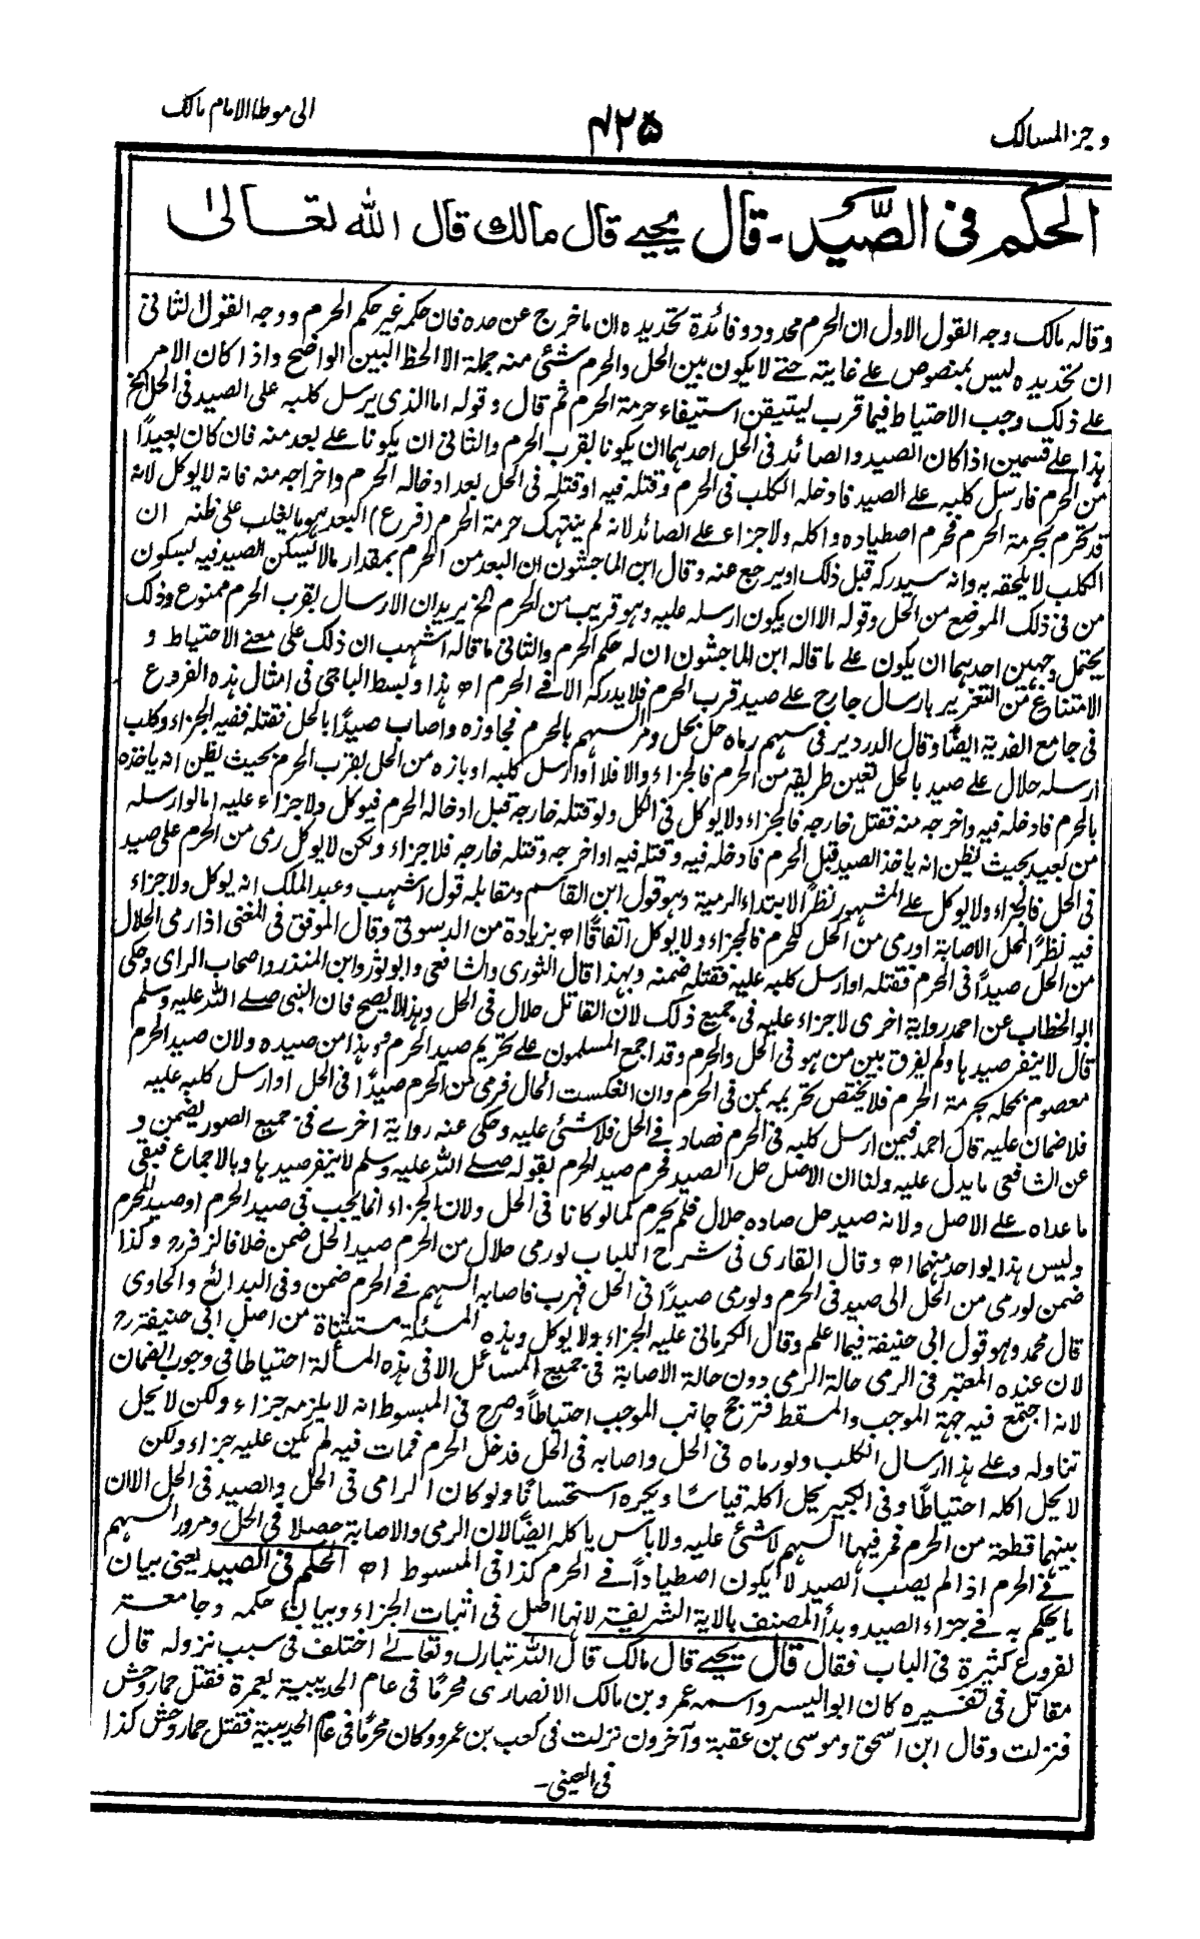 وجز المسالك
٤٢٥
الى موطا الامام مالك
الحكم فى الصّيد ـ قال يحيى قال مالك قال الله تعالى
وقاله مالك وجه القول الاول ان الحرم محدود وفائدة تحديده ان ما خرج عن حده فان حكمه غير حكم الحرم ووجه القول الثانى
ان تحديده ليس بمنصوص على غايته حتى لا يكون بين الحل والحرم شئ منه جملة الا الحظ البين الواضح واذا كان الامر
على ذلك وجب الاحتياط فيما قرب ليتيقن استيفاء حرمة الحرم ثم قال وقوله اما الذى يرسل كلبه على الصيد فى الحل الخ
هذا على قسمين اذا كان الصيد والصائد فى الحل احدهما ان يكونا بقرب الحرم والثانى ان يكونا على بعد منه فان كان بعيدًا
من الحرم فارسل كلبه على الصيد فادخله الكلب فى الحرم وقتله فيه او قتله فى الحل بعد ادخاله الحرم واخراجه منه فانه لا يوكل لانه
قد تحرم بحرمة الحرم فحرم اصطياده واكله ولا جزاء على الصائد لانه لم ينتهك حرمة الحرم (فرع) البعد هو ما يغلب على ظنه ان
الكلب لا يلحقه به وانه سيدركه قبل ذلك او يرجع عنه وقال ابن الماجشون ان البعد من الحرم بمقدار ما لا يسكن الصيد فيه بسكون
من فى ذلك الموضع من الحل وقوله الا ان يكون ارسله عليه وهو قريب من الحرم الخ يريد ان الارسال بقرب الحرم ممنوع وذلك
يحتمل وجهين احدهما ان يكون على ما قاله ابن الماجشون ان له حكم الحرم والثانى ما قاله اشهب ان ذلك على معنى الاحتياط و
الامتناع من التغرير بارسال جارح على صيد قرب الحرم فلا يدركه الا فى الحرم اھ هذا وبسط الباجى فى امثال هذه الفروع
فى جامع الفدية ايضًا وقال الدردير فى سهم رماه حل بحل ومر السهم بالحرم فجاوزه واصاب صيدًا بالحل فقتله ففيه الجزاء وكلب
ارسله حلال على صيد بالحل تعين طريقه من الحرم فالجزاء والا فلا او ارسل كلبه او بازه من الحل بقرب الحرم بحيث يظن انه ياخذه
بالحرم فادخله فيه واخرجه منه فقتل خارجه فالجزاء ولا يوكل فى الكل ولو قتله خارجه قبل ادخاله الحرم فيوكل ولا جزاء عليه اما لو ارسله
من بعيد بحيث يظن انه ياخذ الصيد قبل الحرم فادخله فيه وقتله فيه او اخرجه وقتله خارجه فلا جزاء ولكن لا يوكل رمى من الحرم على صيد
فى الحل فالجزاء ولا يوكل على المشهور نظرًا لابتداء الرمية وهو قول ابن القاسم ومقابله قول اشهب وعبد الملك انه يوكل ولا جزاء
فيه نظرًا لمحل الاصابة او رمى من الحل للحرم فالجزاء ولا يوكل اتفاقًا اھ بزيادة من الدسوقى وقال الموفق فى المغنى اذا رمى الحلال
من الحل صيدًا فى الحرم فقتله او ارسل كلبه عليه فقتله ضمنه وبهذا قال الثورى والشافعى وابو ثور وابن المنذر واصحاب الراى وحكى
ابو الخطاب عن احمد رواية اخرى لا جزاء عليه فى جميع ذلك لان القاتل حلال فى الحل وهذا لا يصح فان النبى صلى الله عليه وسلم
قال لا ينفر صيدها ولم يفرق بين من هو فى الحل والحرم وقد اجمع المسلمون على تحريم صيد الحرم وهذا من صيده ولان صيد الحرم
معصوم بمحله بحرمة الحرم فلا يختص تحريمه بمن فى الحرم وان انعكست الحال فرمى من الحرم صيدًا فى الحل او ارسل كلبه عليه
فلا ضمان عليه قال احمد فيمن ارسل كلبه فى الحرم فصاد فى الحل فلا شئ عليه وحكى عنه رواية اخرى فى جميع الصور يضمن و
عن الشافعى ما يدل عليه ولنا ان الاصل حل الصيد فحرم صيد الحرم بقوله صلى الله عليه وسلم لا ينفر صيدها وبالاجماع فبقى
ما عداه على الاصل ولانه صيد حل صاده حلال فلم يحرم كما لو كانا فى الحل ولان الجزاء انما يجب فى صيد الحرم او صيد المحرم
وليس هذا بواحد منهما اھ وقال القارى فى شرح اللباب لو رمى حلال من الحرم صيد الحل ضمن خلافا لزفر رح وكذا
ضمن لو رمى من الحل الى صيد فى الحرم ولو رمى صيدًا فى الحل فهرب فاصابه السهم فى الحرم ضمن وفى البدائع والحاوى
قال محمد وهو قول ابى حنيفة فيما اعلم وقال الكرمانى عليه الجزاء ولا يوكل وهذه المسئلة مستثناة من اصل ابى حنيفة رح
لان عنده المعتبر فى الرمى حالة الرمى دون حالة الاصابة فى جميع المسائل الا فى هذه المسألة احتياطا فى وجوب الضمان
لانه اجتمع فيه جهة الموجب والمسقط فترجح جانب الموجب احتياطًا وصرح فى المبسوط انه لا يلزمه جزاء ولكن لا يحل
تناوله وعلى هذا ارسال الكلب ولو رماه فى الحل واصابه فى الحل فدخل الحرم فمات فيه لم يكن عليه جزاء ولكن
لا يحل اكله احتياطًا وفى الكبير يحل اكله قياسًا ويكره استحسانًا ولو كان الرامى فى الحل والصيد فى الحل الا ان
بينهما قطعة من الحرم فمر فيها السهم لا شئ عليه ولا بأس باكله ايضًا لان الرمى والاصابة حصلا فى الحل ومرور السهم
فى الحرم اذا لم يصب الصيد لا يكون اصطيادًا فى الحرم كذا فى المبسوط اھ الحكم فى الصيد يعنى بيان
ما يحكم به فى جزاء الصيد وبدأ المصنف بالآية الشريفة لانها اصل فى اثبات الجزاء وبيان حكمه وجامعة
لفروع كثيرة فى الباب فقال قال يحيى قال مالك قال الله تبارك وتعالى اختلف فى سبب نزوله قال
مقاتل فى تفسيره كان ابو اليسر واسمه عمرو بن مالك الانصارى محرمًا فى عام الحديبية بعمرة فقتل حمار وحش
فنزلت وقال ابن اسحق وموسى بن عقبة وآخرون نزلت فى كعب بن عمرو وكان محرمًا فى عام الحديبية فقتل حمار وحش كذا
فى العينى ـ